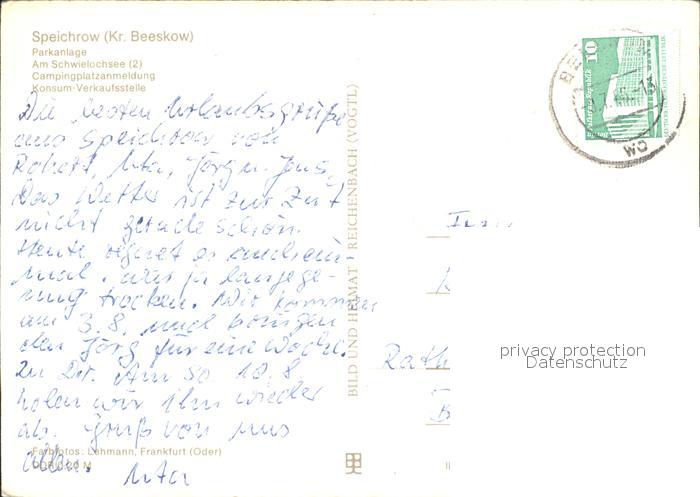 Speichrow (Kr. Beeskow)
Parkanlage
Am Schwielochsee (2)
Campingplatzanmeldung
Konsum-Verkaufsstelle
Die besten Urlaubsgrüße
aus Speichrow von
Robert, Uta, Jörg u. Jens.
Das Wetter ist zur Zeit
nicht gerade schön.
Heute regnet es auch ein-
mal. war ja lange ge-
nug trocken. Wir kommen
am 3.8. und bringen
den Jörg für eine Woche
zu Dir. Am So 10.8
holen wir ihn wieder
ab. Gruß von uns
allen. Uta
Farbfotos: Lehmann, Frankfurt (Oder)
BILD UND HEIMAT REICHENBACH (VOGTL)
10
Rath
B
privacy protection
Datenschutz